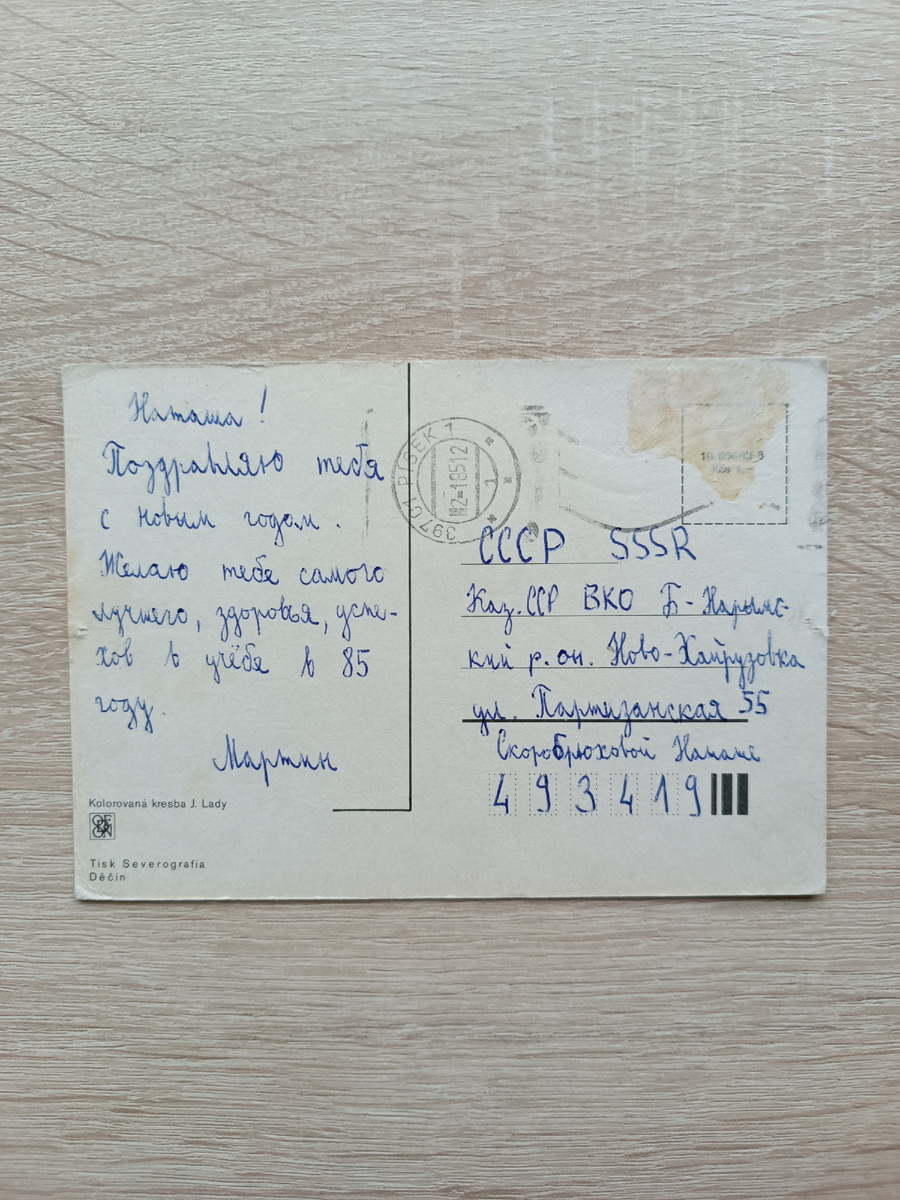 Наташа!
Поздравляю тебя
с новым годом.
Желаю тебе самого
лучшего, здоровья, успе-
хов в учёбе в 85
году.
Мартин
Kolorovaná kresba J. Lady
ODEON
Tisk Severografia
Děčín
397 01 PÍSEK 1
2-1 85 12
1
СССР SSSR
Каз. ССР ВКО Б-Нарымс-
кий р. он. Ново-Хайрузовка
ул. Партизанская 55
Скоробрюховой Наташе
493419